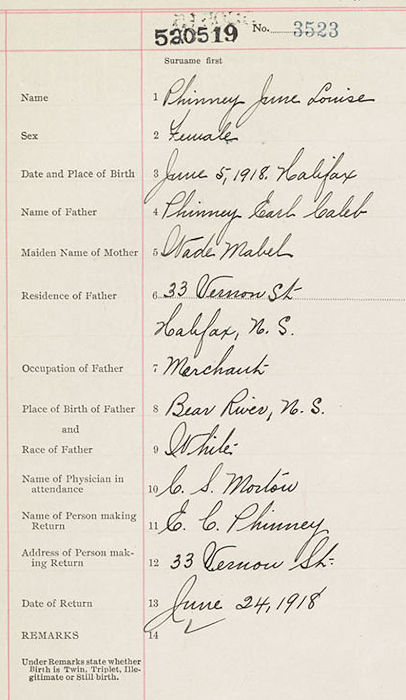 520519 No. 3523
Surname first
Name 1 Phinney June Louise
Sex 2 Female
Date and Place of Birth 3 June 5, 1918. Halifax
Name of Father 4 Phinney Earl Caleb
Maiden Name of Mother 5 Wade Mabel
Residence of Father 6 33 Vernon St
Halifax, N. S.
Occupation of Father 7 Merchant
Place of Birth of Father 8 Bear River, N. S.
and
Race of Father 9 White
Name of Physician in
attendance 10 C. S. Morton
Name of Person making
Return 11 E. C. Phinney
Address of Person mak-
ing Return 12 33 Vernon St.
Date of Return 13 June 24, 1918
REMARKS 14
Under Remarks state whether
Birth is Twin, Triplet, Ille-
gitimate or Still birth.